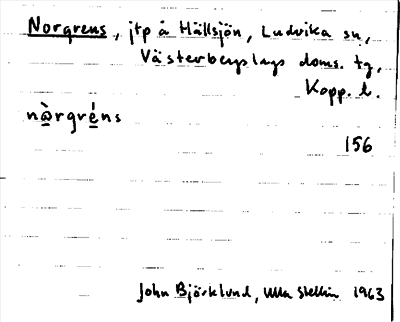 Norgrens, jtp å Hällsjön, Ludvika sn,
Västerbergslags doms. tg,
Kopp. l.
nòrgréns
156
John Björklund, Ulla Stellin 1963